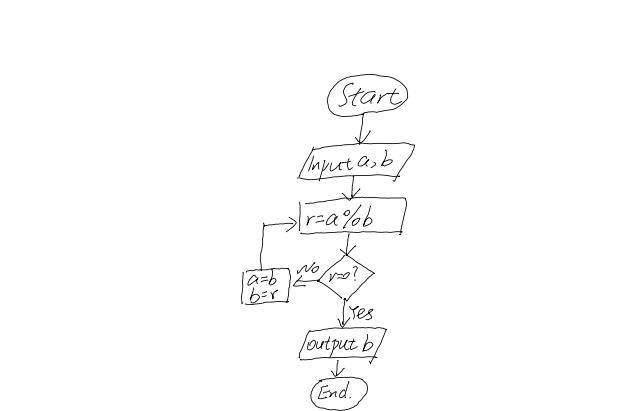 Start
Input a, b
r=a%b
No
r=0?
a=b
b=r
Yes
output b
End.